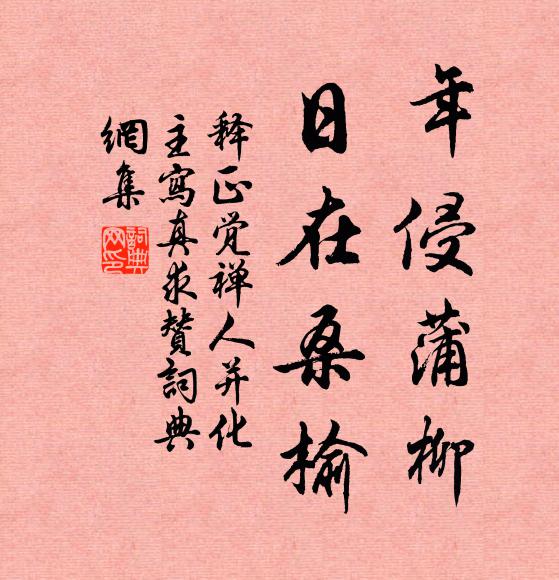 年侵蒲柳
日在桑榆
释正觉禅人并化
主寫真求赞詞典
網集
詞典網印